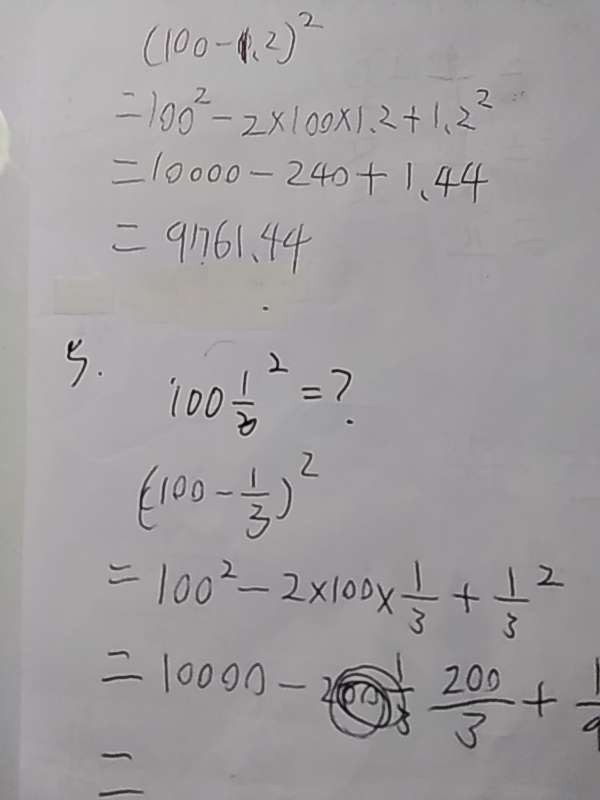 (100-1.2)²
=100²-2×100×1.2+1.2²
=10000-240+1.44
=9761.44
5.
100 1/3² =?
(100-1/3)²
=100²-2×100×1/3+1/3²
=10000-200/3+1/9
=